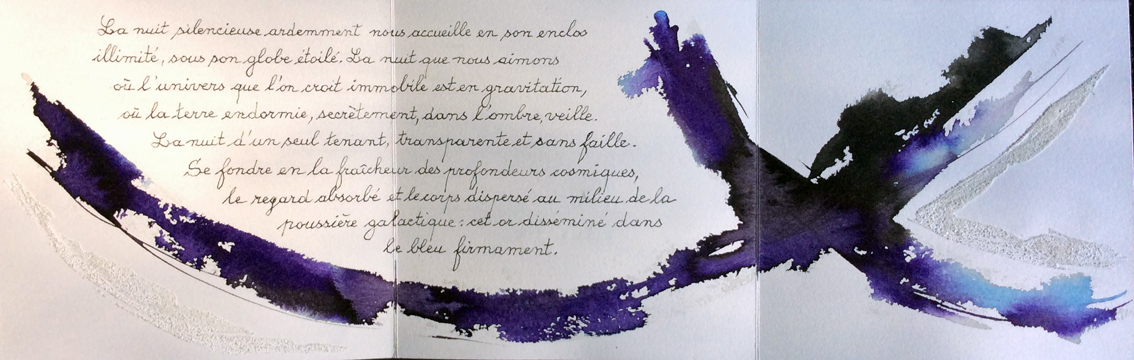 La nuit silencieuse ardemment nous accueille en son enclos
illimité, sous son globe étoilé. La nuit que nous aimons
où l'univers que l'on croit immobile est en gravitation,
où la terre endormie, secrètement, dans l'ombre, veille.
La nuit d'un seul tenant, transparente et sans faille.
Se fondre en la fraîcheur des profondeurs cosmiques,
le regard absorbé et le corps dispersé au milieu de la
poussière galactique : cet or disséminé dans
le bleu firmament.